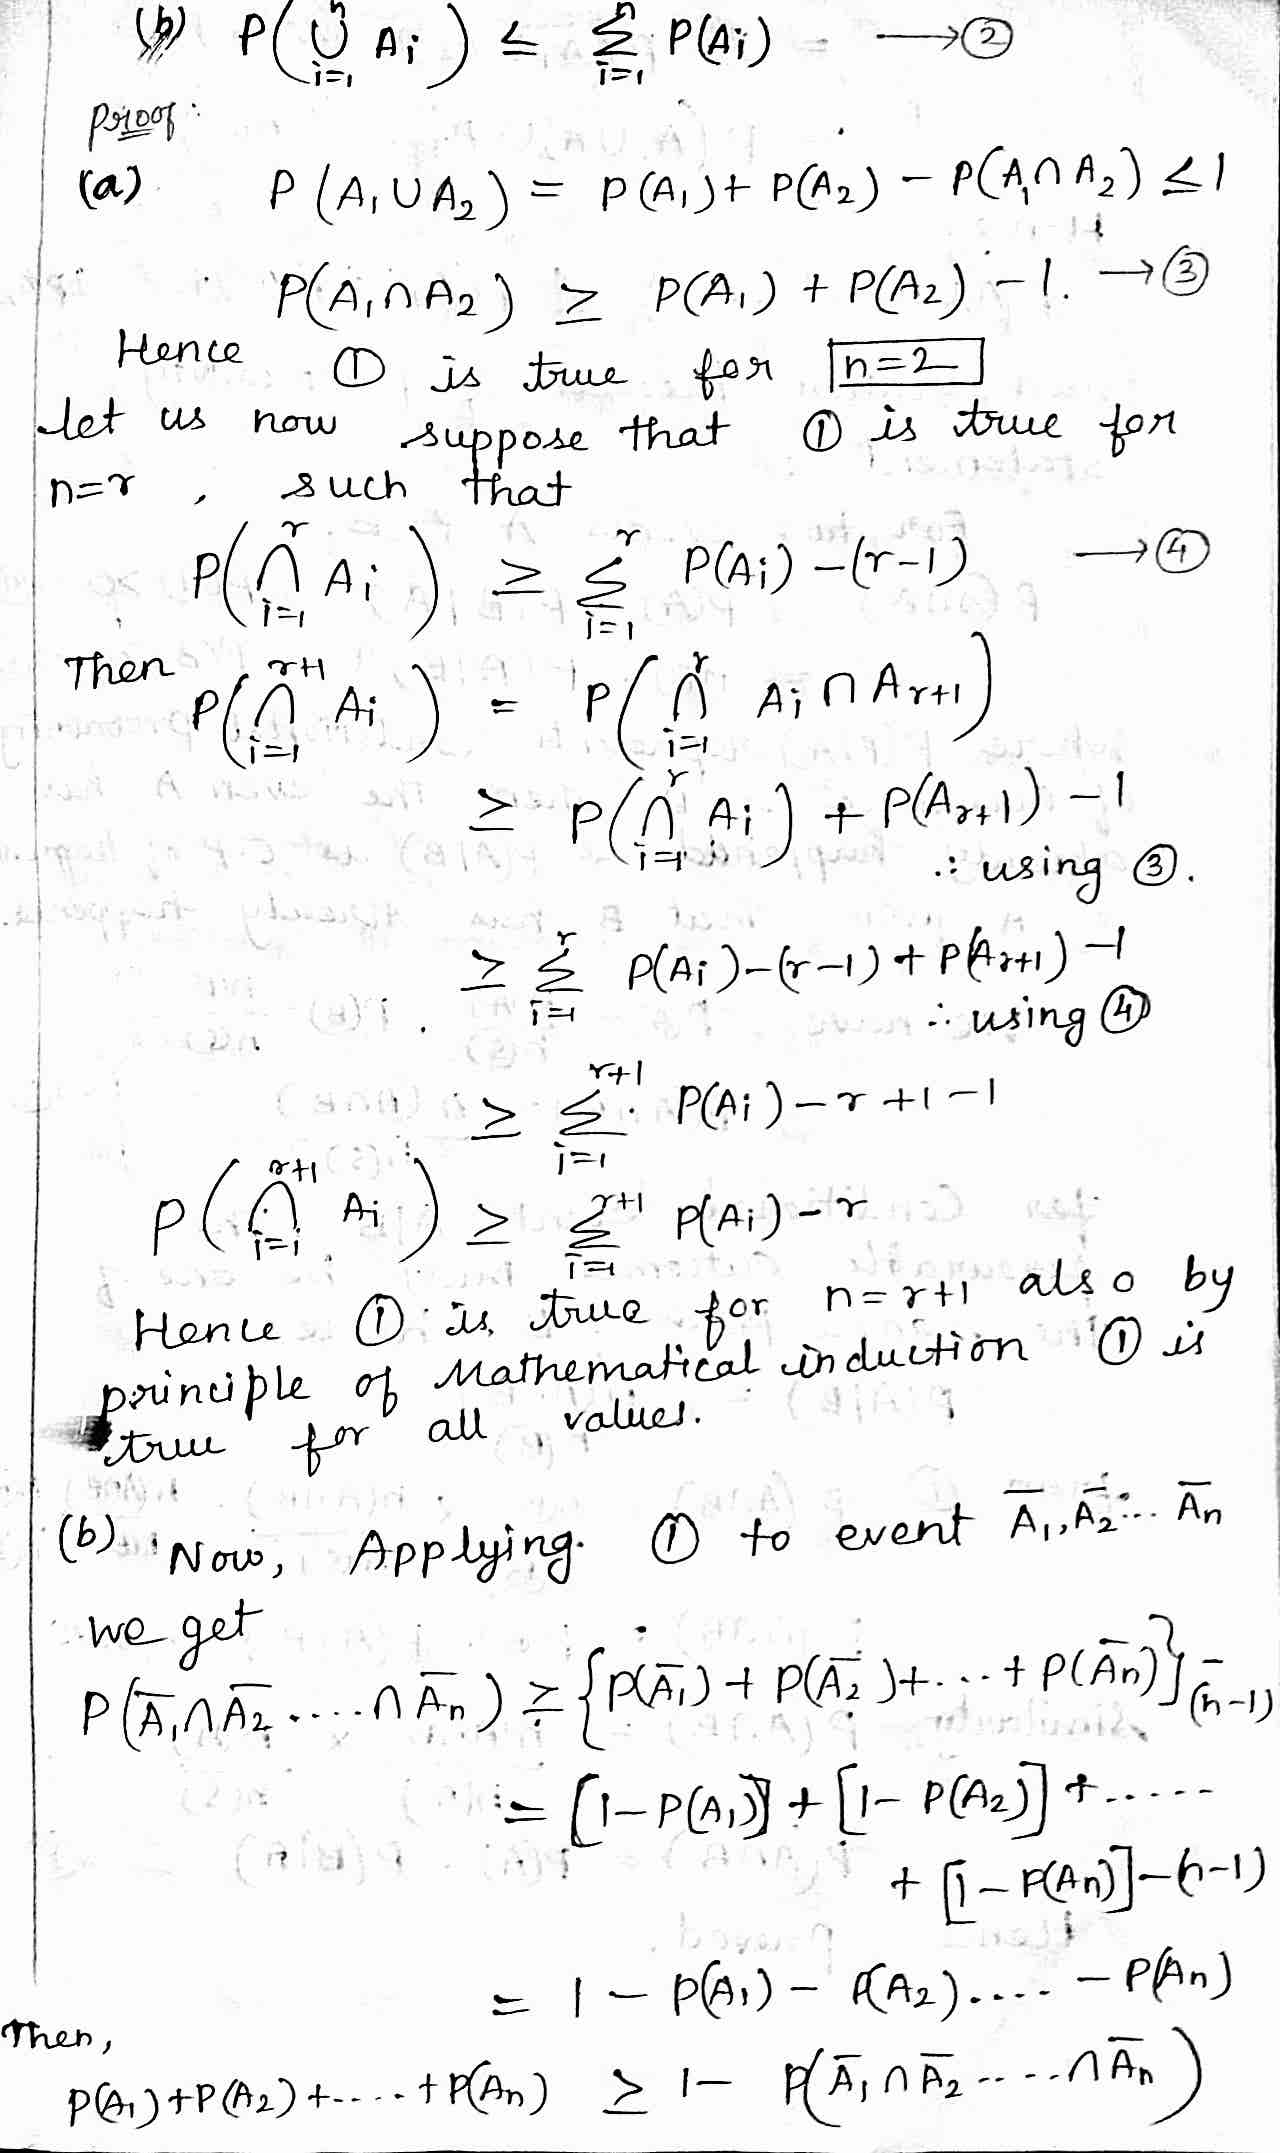 (b) P(⋃_{i=1}^{n} Ai) ≤ Σ_{i=1}^{n} P(Ai) ⟶ ②
Proof:
(a) P(A₁∪A₂) = P(A₁)+ P(A₂) – P(A₁∩A₂) ≤ 1
P(A₁∩A₂) ≥ P(A₁) + P(A₂) – 1. ⟶ ③
Hence ① is true for n=2
let us now suppose that ① is true for
n=r , such that
P(⋂_{i=1}^{r} Ai) ≥ Σ_{i=1}^{r} P(Ai) –(r–1) ⟶ ④
Then P(⋂_{i=1}^{r+1} Ai) = P(⋂_{i=1}^{r} Ai ∩ A_{r+1})
≥ P(⋂_{i=1}^{r} Ai) + P(A_{r+1}) – 1
∴ using ③.
≥ Σ_{i=1}^{r} P(Ai)–(r–1) + P(A_{r+1}) –1
∴ using ④
≥ Σ_{i=1}^{r+1} P(Ai) – r +1 –1
P(⋂_{i=1}^{r+1} Ai) ≥ Σ_{i=1}^{r+1} P(Ai) – r
Hence ① is true for n=r+1 also by
principle of Mathematical induction ① is
true for all values.
(b) Now, Applying ① to event A̅₁, A̅₂... A̅n
we get
P(A̅₁∩A̅₂.....∩A̅n) ≥ {P(A̅₁) + P(A̅₂)+....+ P(A̅n)} –(n–1)
= [1–P(A₁)] + [1– P(A₂)] +.....
+ [1–P(An)]–(n–1)
= 1 – P(A₁) – P(A₂).... – P(An)
Then,
P(A₁)+P(A₂)+....+P(An) ≥ 1– P(A̅₁∩A̅₂.....∩A̅n)